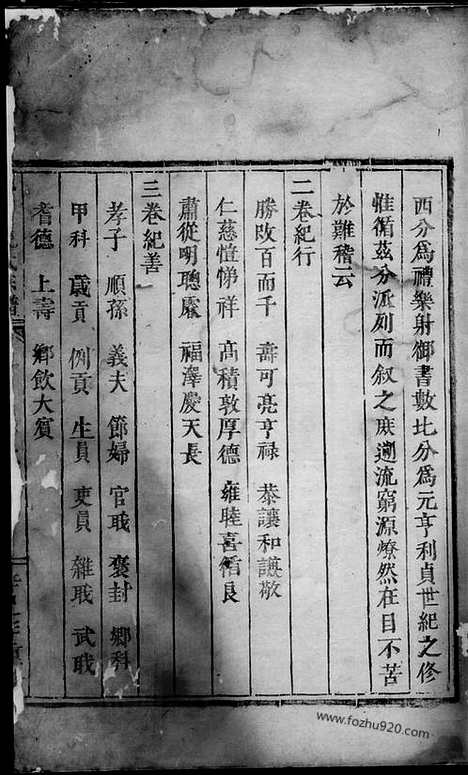 西分為禮樂射御書數比分為元亨利貞世紀之修
惟循茲分派列而叙之庶遡流窮源燎然在目不苦
於難稽云
二卷紀行
勝政百而千 壽可亮亨禄 恭讓和謙敬
仁慈愷悌祥 髙積敦厚德 雍睦喜循良
肅從明聰廉 福澤慶天長
三卷紀善
孝子 順孫 義夫 節婦 官职 褒封 鄉科
甲科 歲貢 例貢 生員 吏員 雜职 武职
耆德 上壽 鄉飲大賓
www.fozhu920.com